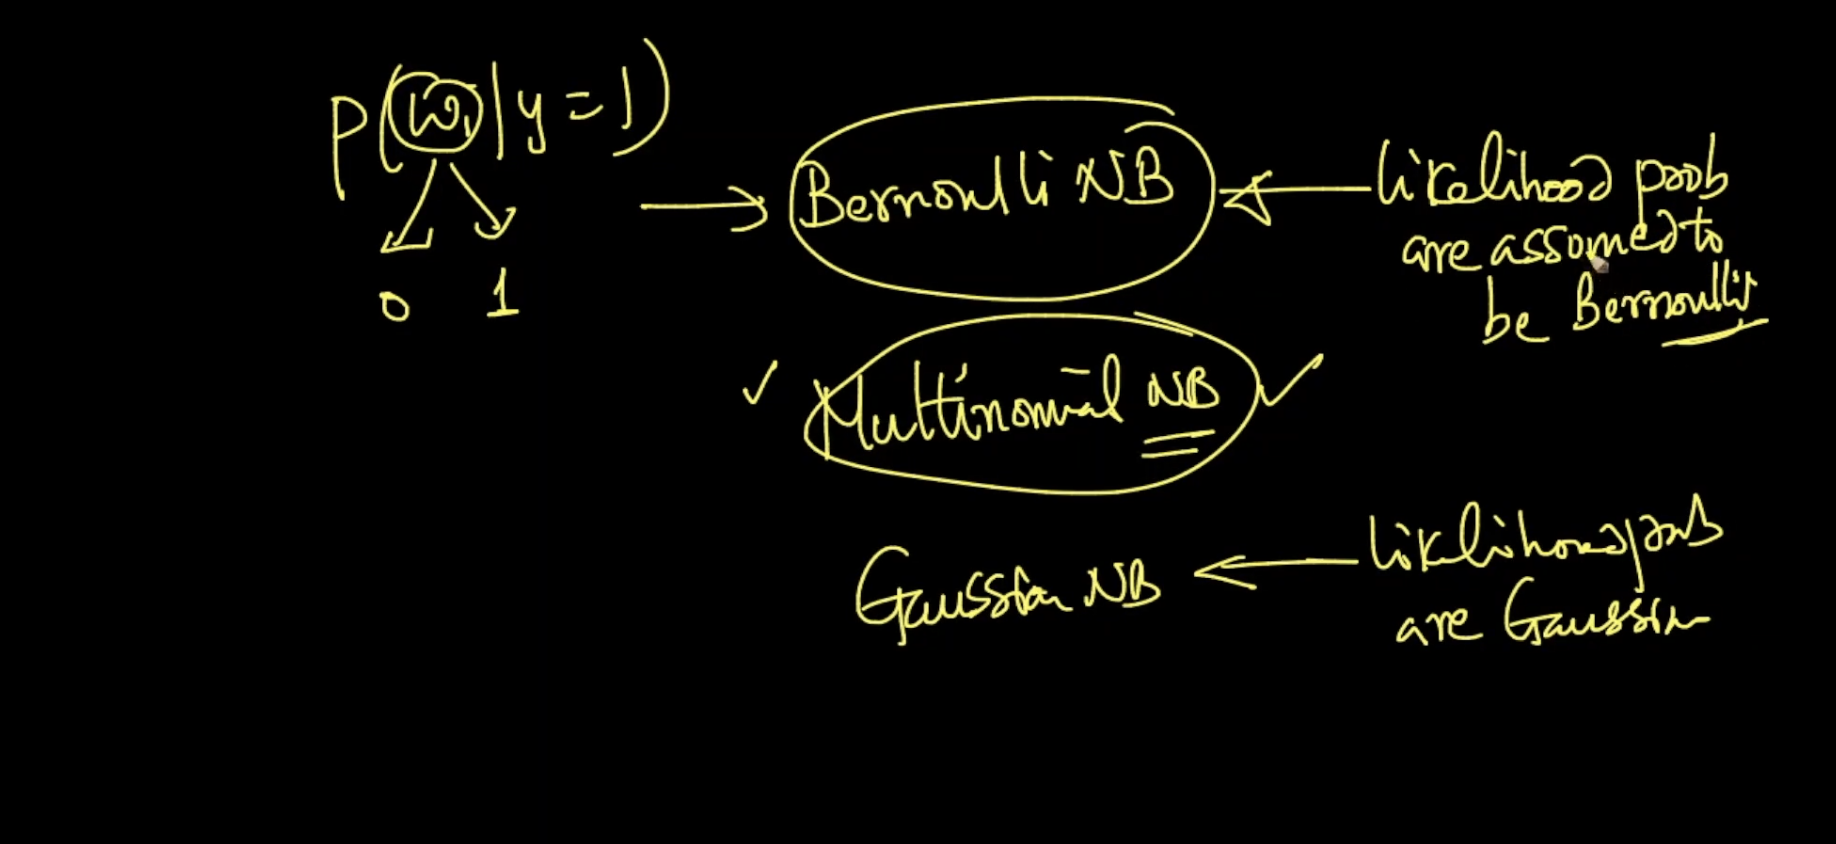 P(w₁|y=1)
0 1
→ Bernoulli NB ← likelihood prob
are assumed to
be Bernoulli
✓ Multinomial NB ✓
Gaussian NB ← likelihood prob
are Gaussian